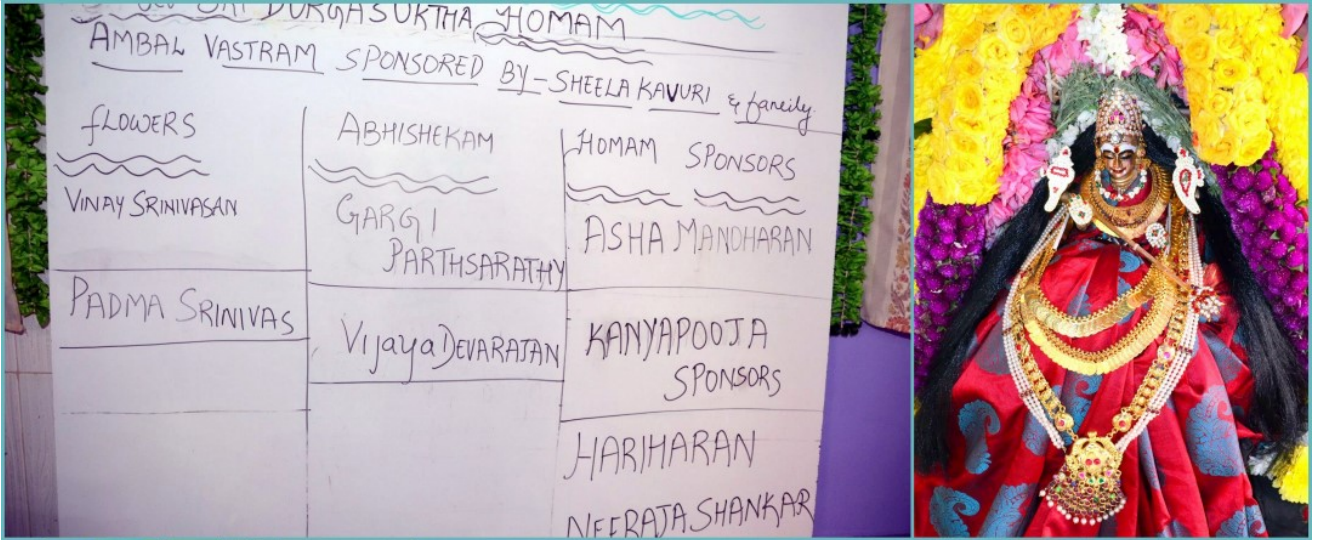 SRI DURGASUKTHA HOMAM
AMBAL VASTRAM SPONSORED BY - SHEELA KAVURI & family.
FLOWERS
VINAY SRINIVASAN
PADMA SRINIVAS
ABHISHEKAM
GARGI
PARTHSARATHY
Vijaya DEVARAJAN
HOMAM SPONSORS
ASHA MANOHARAN
KANYAPOOJA
SPONSORS
HARIHARAN
NEERAJA SHANKAR